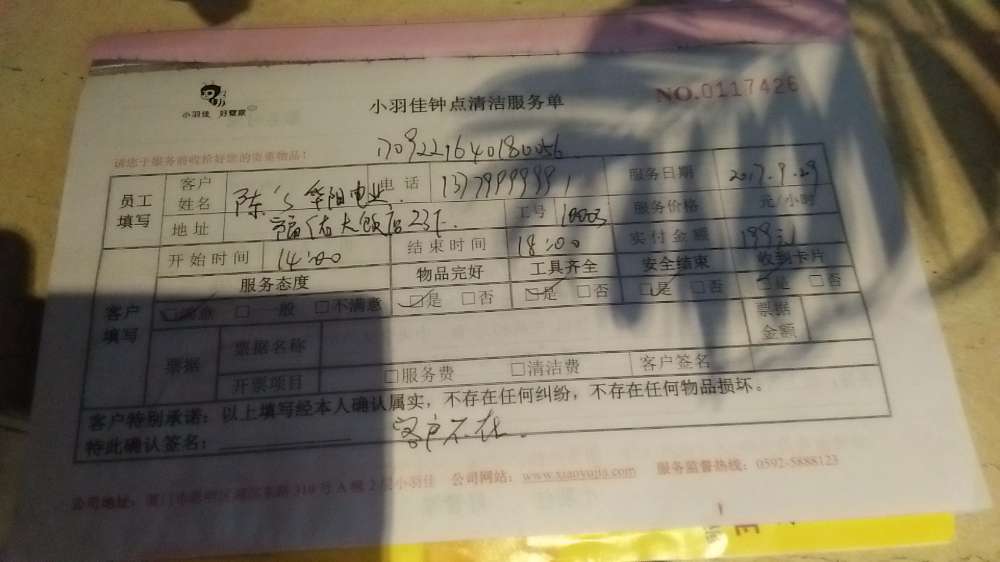 小羽佳 好管家
小羽佳钟点清洁服务单
NO.0117426
请您于服务前收拾好您的贵重物品!
1709221640180056
员工填写 客户姓名 陈's 华阳电业 电话 13799999991 服务日期 2017.9.29
地址 大饭店23F 工号 服务价格 元/小时
开始时间 14:00 结束时间 18:00 实付金额 199元
客户填写 服务态度 物品完好 工具齐全 安全结束 收到卡片
☑满意 □一般 □不满意 ☑是 □否 ☑是 □否 ☑是 □否 ☑是 □否
票据 票据名称 票据金额
开票项目 □服务费 □清洁费 客户签名
客户特别承诺:以上填写经本人确认属实,不存在任何纠纷,不存在任何物品损坏。
特此确认签名: 客户不在.
公司地址:厦门市思明区湖滨南路310号A幢2层小羽佳 公司网站:www.xiaoyujia.com 服务监督热线:0592-5888123